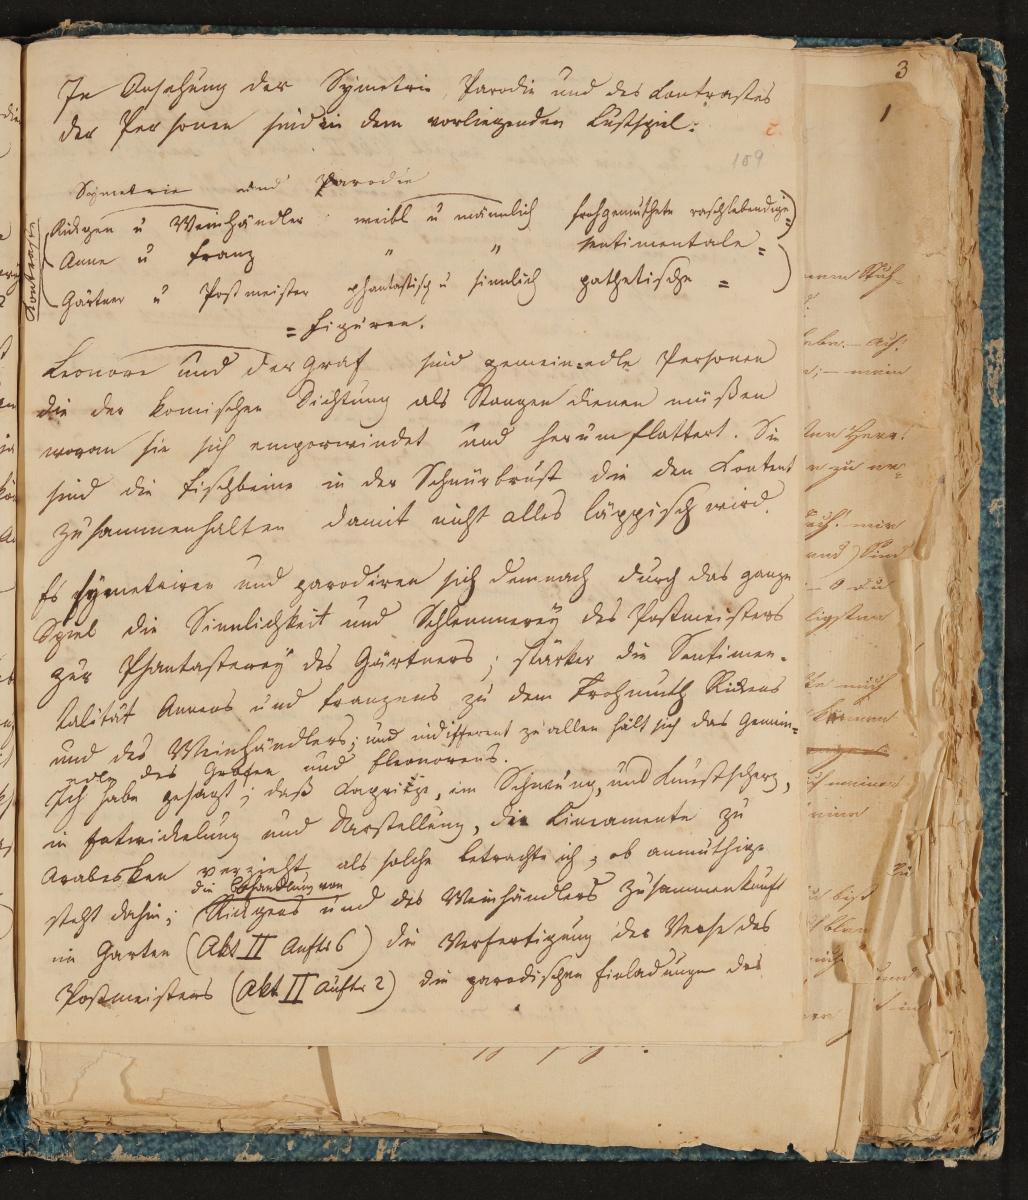 3
1
In Ansehung der Symetrie, Parodie und des Contrastes
der Personen sind in dem vorliegenden Lustspiel:
2.
109
Symetrie und Parodie
Contraste
Rückgen u Weinhändler weibl u männlich frohgemuthete raschlebendige =
Anne u Franz " " sentimentale =
Gärtner u Postmeister phantastisch u sinnlich pathetische =
= Figuren.
Leonore und der Graf sind gemein-edle Personen
die der komischen Dichtung als Stangen dienen müßen
woran sie sich emporwindet und herumflattert. Sie
sind die Fischbeine in der Schnürbrust die den Content
zusammenhalten damit nicht alles läppisch wird.
Es symetriren und parodiren sich demnach durch das ganze
Spiel die Sinnlichkeit und Schlemmerey des Postmeisters
zur Phantasterey des Gärtners; stärker die Sentimen-
talität Annens und Franzens zu dem Frohmuth Rükens
und des Weinhändlers; und indifferent zu allen hält sich das Gemein-
edle des Grafen und Eleonorens.
Ich habe gesagt; daß Kaprizze, im Schwung, und Kunstscherz,
in Entwickelung und Darstellung, die Lineamente zu
Arabesken verzieht, als solche betrachte ich, ob anmuthige
steht dahin; die Behandlung von Rückgens und des Weinhändlers Zusammenkunft
im Garten (Akt II Auftr 6) die Verfertigung der Verse des
Postmeisters (Akt II Auftr 2) die parodischen Einladungen des